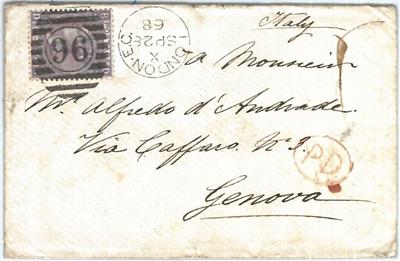 Italy
96
LONDON.EC
X
SP 28
68
a Monsieur
Mr. Alfredo d'Andrade.
Via Caffaro. No 3.
P.D.
Genova